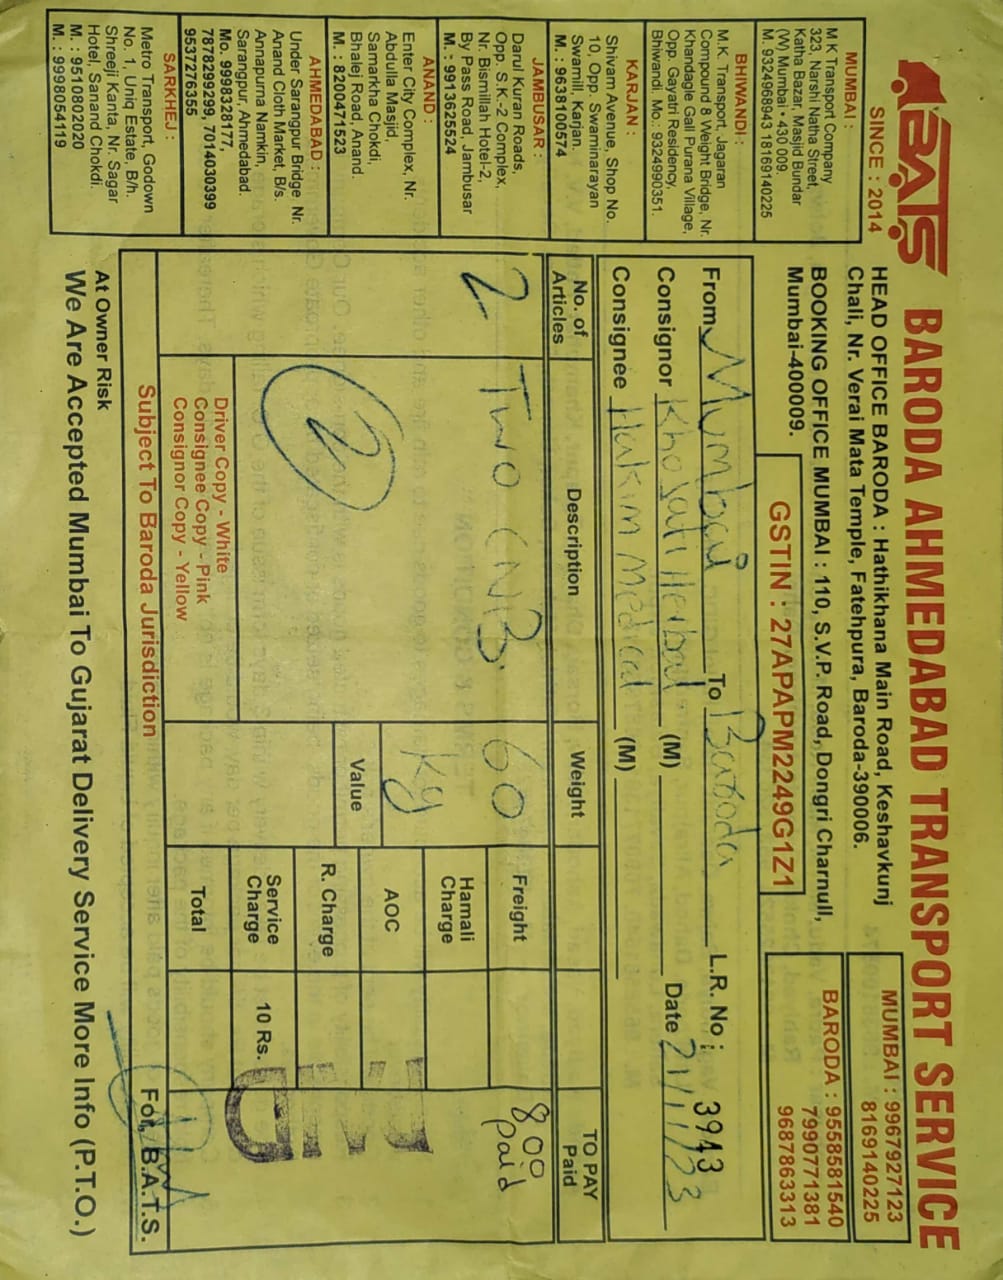 BATS
SINCE : 2014
BARODA AHMEDABAD TRANSPORT SERVICE
HEAD OFFICE BARODA : Hathikhana Main Road, Keshavkunj
Chali, Nr. Verai Mata Temple, Fatehpura, Baroda-390006.
BOOKING OFFICE MUMBAI : 110, S.V.P. Road, Dongri Charnull,
Mumbai-400009.
MUMBAI : 9967927123
8169140225
BARODA : 9558581540
7990771381
9687863313
GSTIN : 27APAPM2249G1Z1
MUMBAI :
M K Transport Company
323, Narshi Natha Street,
Katha Bazar, Masjid Bundar
(W) Mumbai - 430 009.
M. 9324968943 18169140225
BHIWANDI :
M.K. Transport, Jagaran
Compound 8 Weight Bridge, Nr.
Khandagle Gall Purana Village,
Opp. Gayatri Residency,
Bhiwandi. Mo.: 9324990351.
KARJAN :
Shivam Avenue, Shop No.
10, Opp. Swaminarayan
Swamill, Karjan.
M. : 9638100574
JAMBUSAR :
Darul Kuran Roads,
Opp. S.K.-2 Complex,
Nr. Bismillah Hotel-2,
By Pass Road, Jambusar
M. : 9913625524
ANAND :
Enter City Complex, Nr.
Abdulla Masjid,
Samarkha Chokdi,
Bhalej Road, Anand.
M. : 8200471523
AHMEDABAD :
Under Sarangpur Bridge Nr.
Anand Cloth Market, B/s.
Annapurna Namkin,
Sarangpur, Ahmedabad.
Mo. 9998328177,
7878299299, 7014030399
9537276355
SARKHEJ :
Metro Transport, Godown
No. 1, Uniq Estate, B/h.
Shreeji Kanta, Nr. Sagar
Hotel, Sanand Chokdi.
M. : 9510802020
M. : 9998054119
From Mumbai To Baroda L.R. No : 3943
Consignor Khojati Herbal (M) Date 21/1/23
Consignee Hakim Medical (M)
No. of Articles Description Weight TO PAY Paid
2 Two (N)B. 60 Kg Freight 800 Paid
2
Hamali Charge
AOC
Value R. Charge
Service Charge 10 Rs.
Total
Driver Copy - White
Consignee Copy - Pink
Consignor Copy - Yellow
Subject To Baroda Jurisdiction For, B.A.T.S.
At Owner Risk
We Are Accepted Mumbai To Gujarat Delivery Service More Info (P.T.O.)